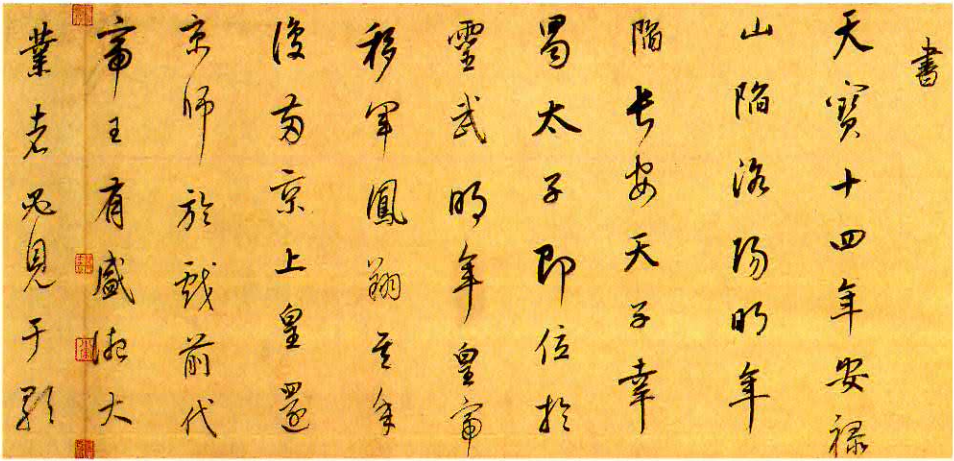 書
天寶十四年安祿
山陷洛陽明年
陷長安天子幸
蜀太子即位於
靈武明年皇帝
移軍鳳翔其年
復兩京上皇還
京師於戲前代
帝王有盛德大
業者必見于歌